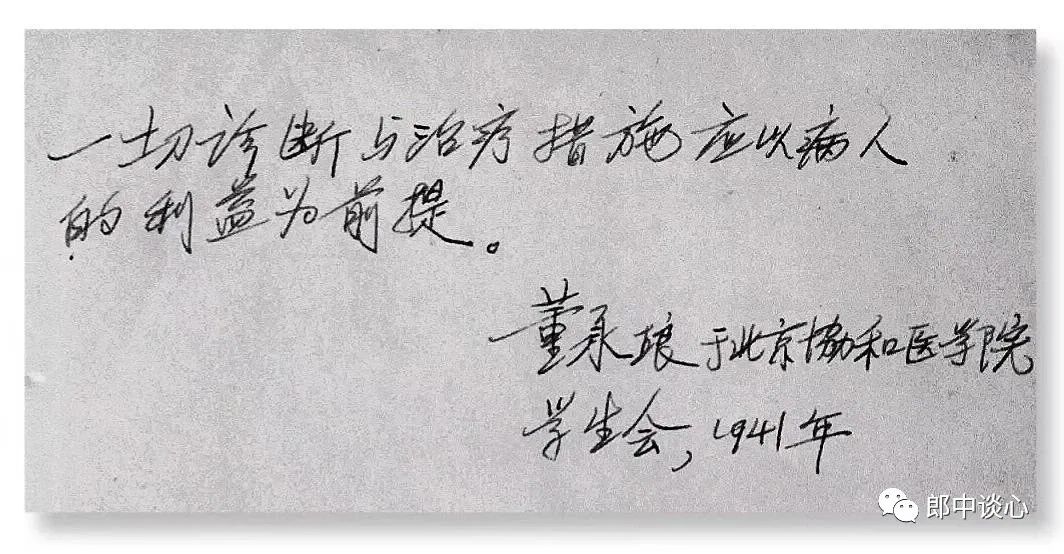 一切诊断与治疗措施应以病人
的利益为前提。
董承琅于北京协和医学院
学生会，1941年
郎中谈心